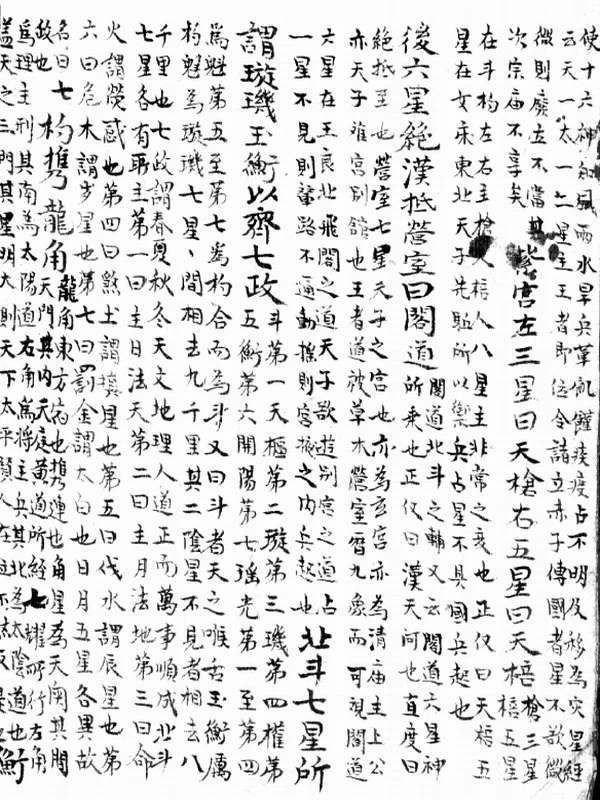 使十六神知風雨水旱兵革飢饉疾疫占不明及移為灾星經
云天一太一二星主王者即位令諸立赤子傳國者星不欲微
微則廢立不當其
次宗廟不享矣
紫宮左三星曰天槍右五星曰天棓
槍三星
棓五星
在斗杓左右主槍人棓人八星主非常之變也正仅曰天棓五
星在女牀東北天子先驅所以禦兵占星不具國兵起也
後六星絕漢抵營室曰閣道
閣道北斗之輔又云閣道六星神
所乘也正仅曰漢天河也直度曰
絕抵至也營室七星天子之宮也亦為玄宮亦為清廟主上公
亦天子離宮別館也王者道被草木營室曆九象而可視閣道
六星在王良北飛閣之道天子欲遊別宮之道占
一星不見則輦路不通動搖則宮掖之內兵起也
北斗七星所
謂璇璣玉衡以齊七政
斗第一天樞第二璇第三璣第四權第
五衡第六開陽第七瑤光第一至第四
為魁第五至第七為杓合而為斗又曰斗者天之喉舌玉衡屬
杓魁為璇璣七星、間相去九千里其二陰星不見者相去八
千里也七政謂春夏秋冬天文地理人道正而萬事順成北斗
七星各有所主第一曰主日法天第二曰主月法地第三曰命
火謂熒惑也第四曰煞土謂填星也第五曰伐水謂辰星也第
六曰危木謂歲星也第七曰罰金謂太白也日月五星各異故
名曰七
政也
杓携龍角
龍角東方宿也携連也角星為天關其間
天門其內天庭黃道所經七耀所行左角
為理主刑其南為太陽道右角為將主兵其北為太陰道也
蓋天之三門其星明大則天下太平賢人在位不然反是也
衡